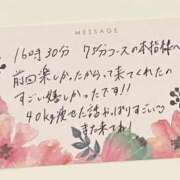 MESSAGE
16時30分 75分コースの本指様へ
前回楽しかったからって来てくれたの
すごい嬉しかったです!!
40kg痩せた話やっぱりすごい♡
また来てね!